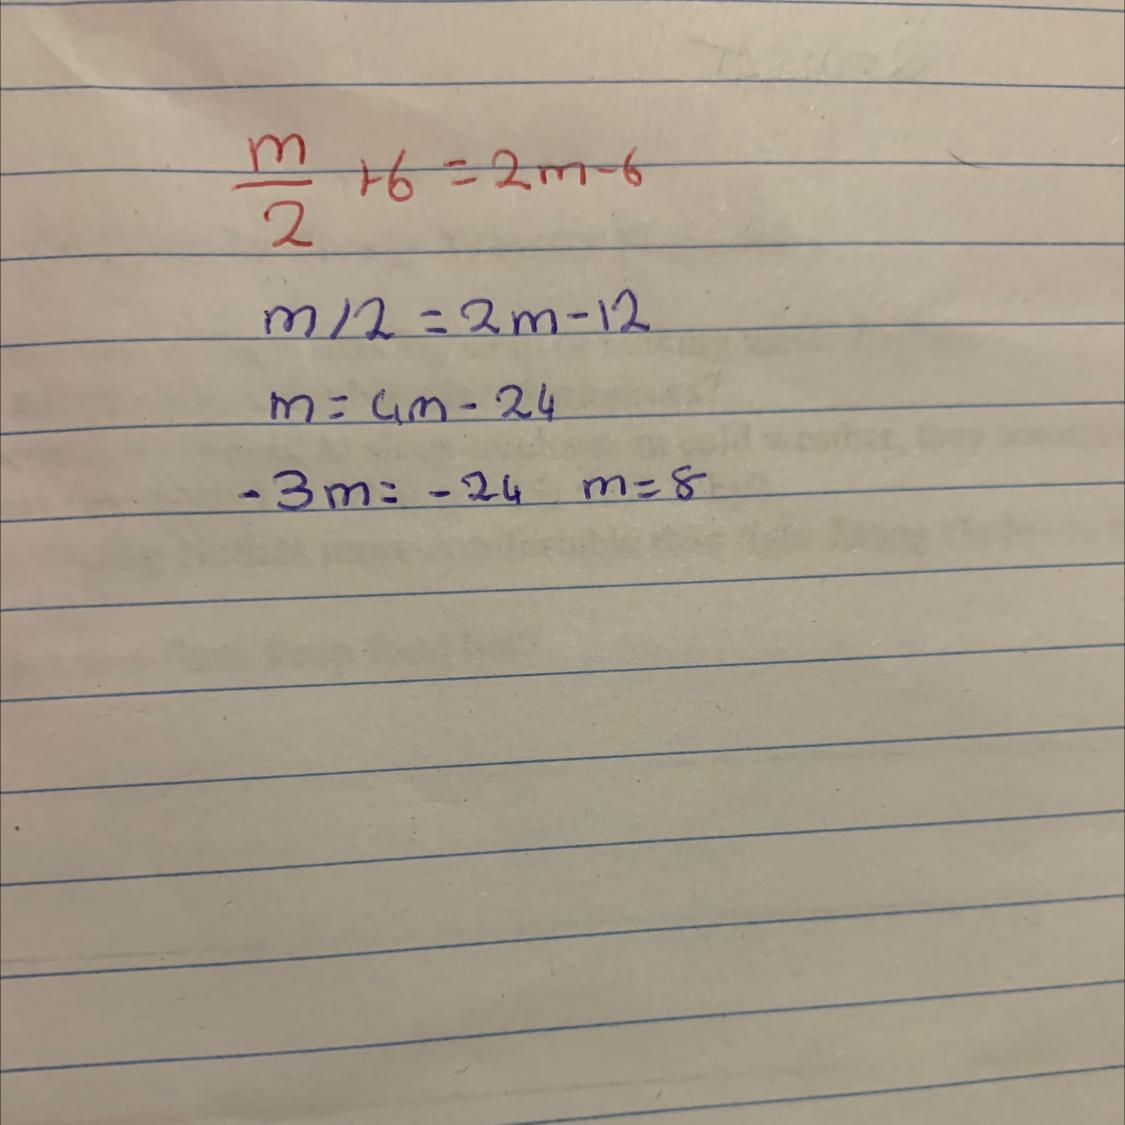 m/2 +6 = 2m-6
m/2 = 2m-12
m = 4m - 24
-3m = -24 m = 8